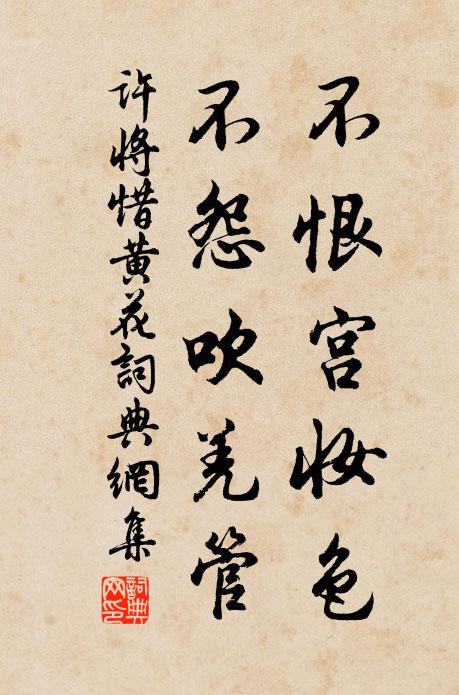 不恨宫妆色
不怨吹羌管
许将惜黄花詞典網集
詞典